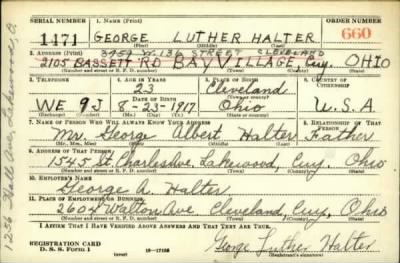 SERIAL NUMBER 1. NAME (Print) ORDER NUMBER
1471 GEORGE LUTHER HALTER 660
(First) (Middle) (Last)
2. ADDRESS (Print) STREET CLEVELAND
2105 BASSETT RD BAY VILLAGE, Cuy. OHIO
(Number and street or R. F. D. number) (Town) (County) (State)
3. TELEPHONE 4. AGE IN YEARS 5. PLACE OF BIRTH 6. COUNTRY OF CITIZENSHIP
23 Cleveland
DATE OF BIRTH (Town or county)
WE 9J 8-23-1917 Ohio U.S.A
(Exchange) (Number) (Mo.) (Day) (Yr.) (State or country)
7. NAME OF PERSON WHO WILL ALWAYS KNOW YOUR ADDRESS 8. RELATIONSHIP OF THAT PERSON
Mr. George Albert Halter Father
(Mr., Mrs., Miss) (First) (Middle) (Last)
9. ADDRESS OF THAT PERSON
1545 St. Charles Ave. Lakewood, Cuy. Ohio
(Number and street or R. F. D. number) (Town) (County) (State)
10. EMPLOYER'S NAME
George A. Halter
11. PLACE OF EMPLOYMENT OR BUSINESS
2604 Walton Ave Cleveland, Cuy, Ohio
(Number and street or R. F. D. number) (Town) (County) (State)
I AFFIRM THAT I HAVE VERIFIED ABOVE ANSWERS AND THAT THEY ARE TRUE.
REGISTRATION CARD
D. S. S. Form 1
(over)
George Luther Halter
(Registrant's signature)
1256 Hall Ave Lakewood, O.